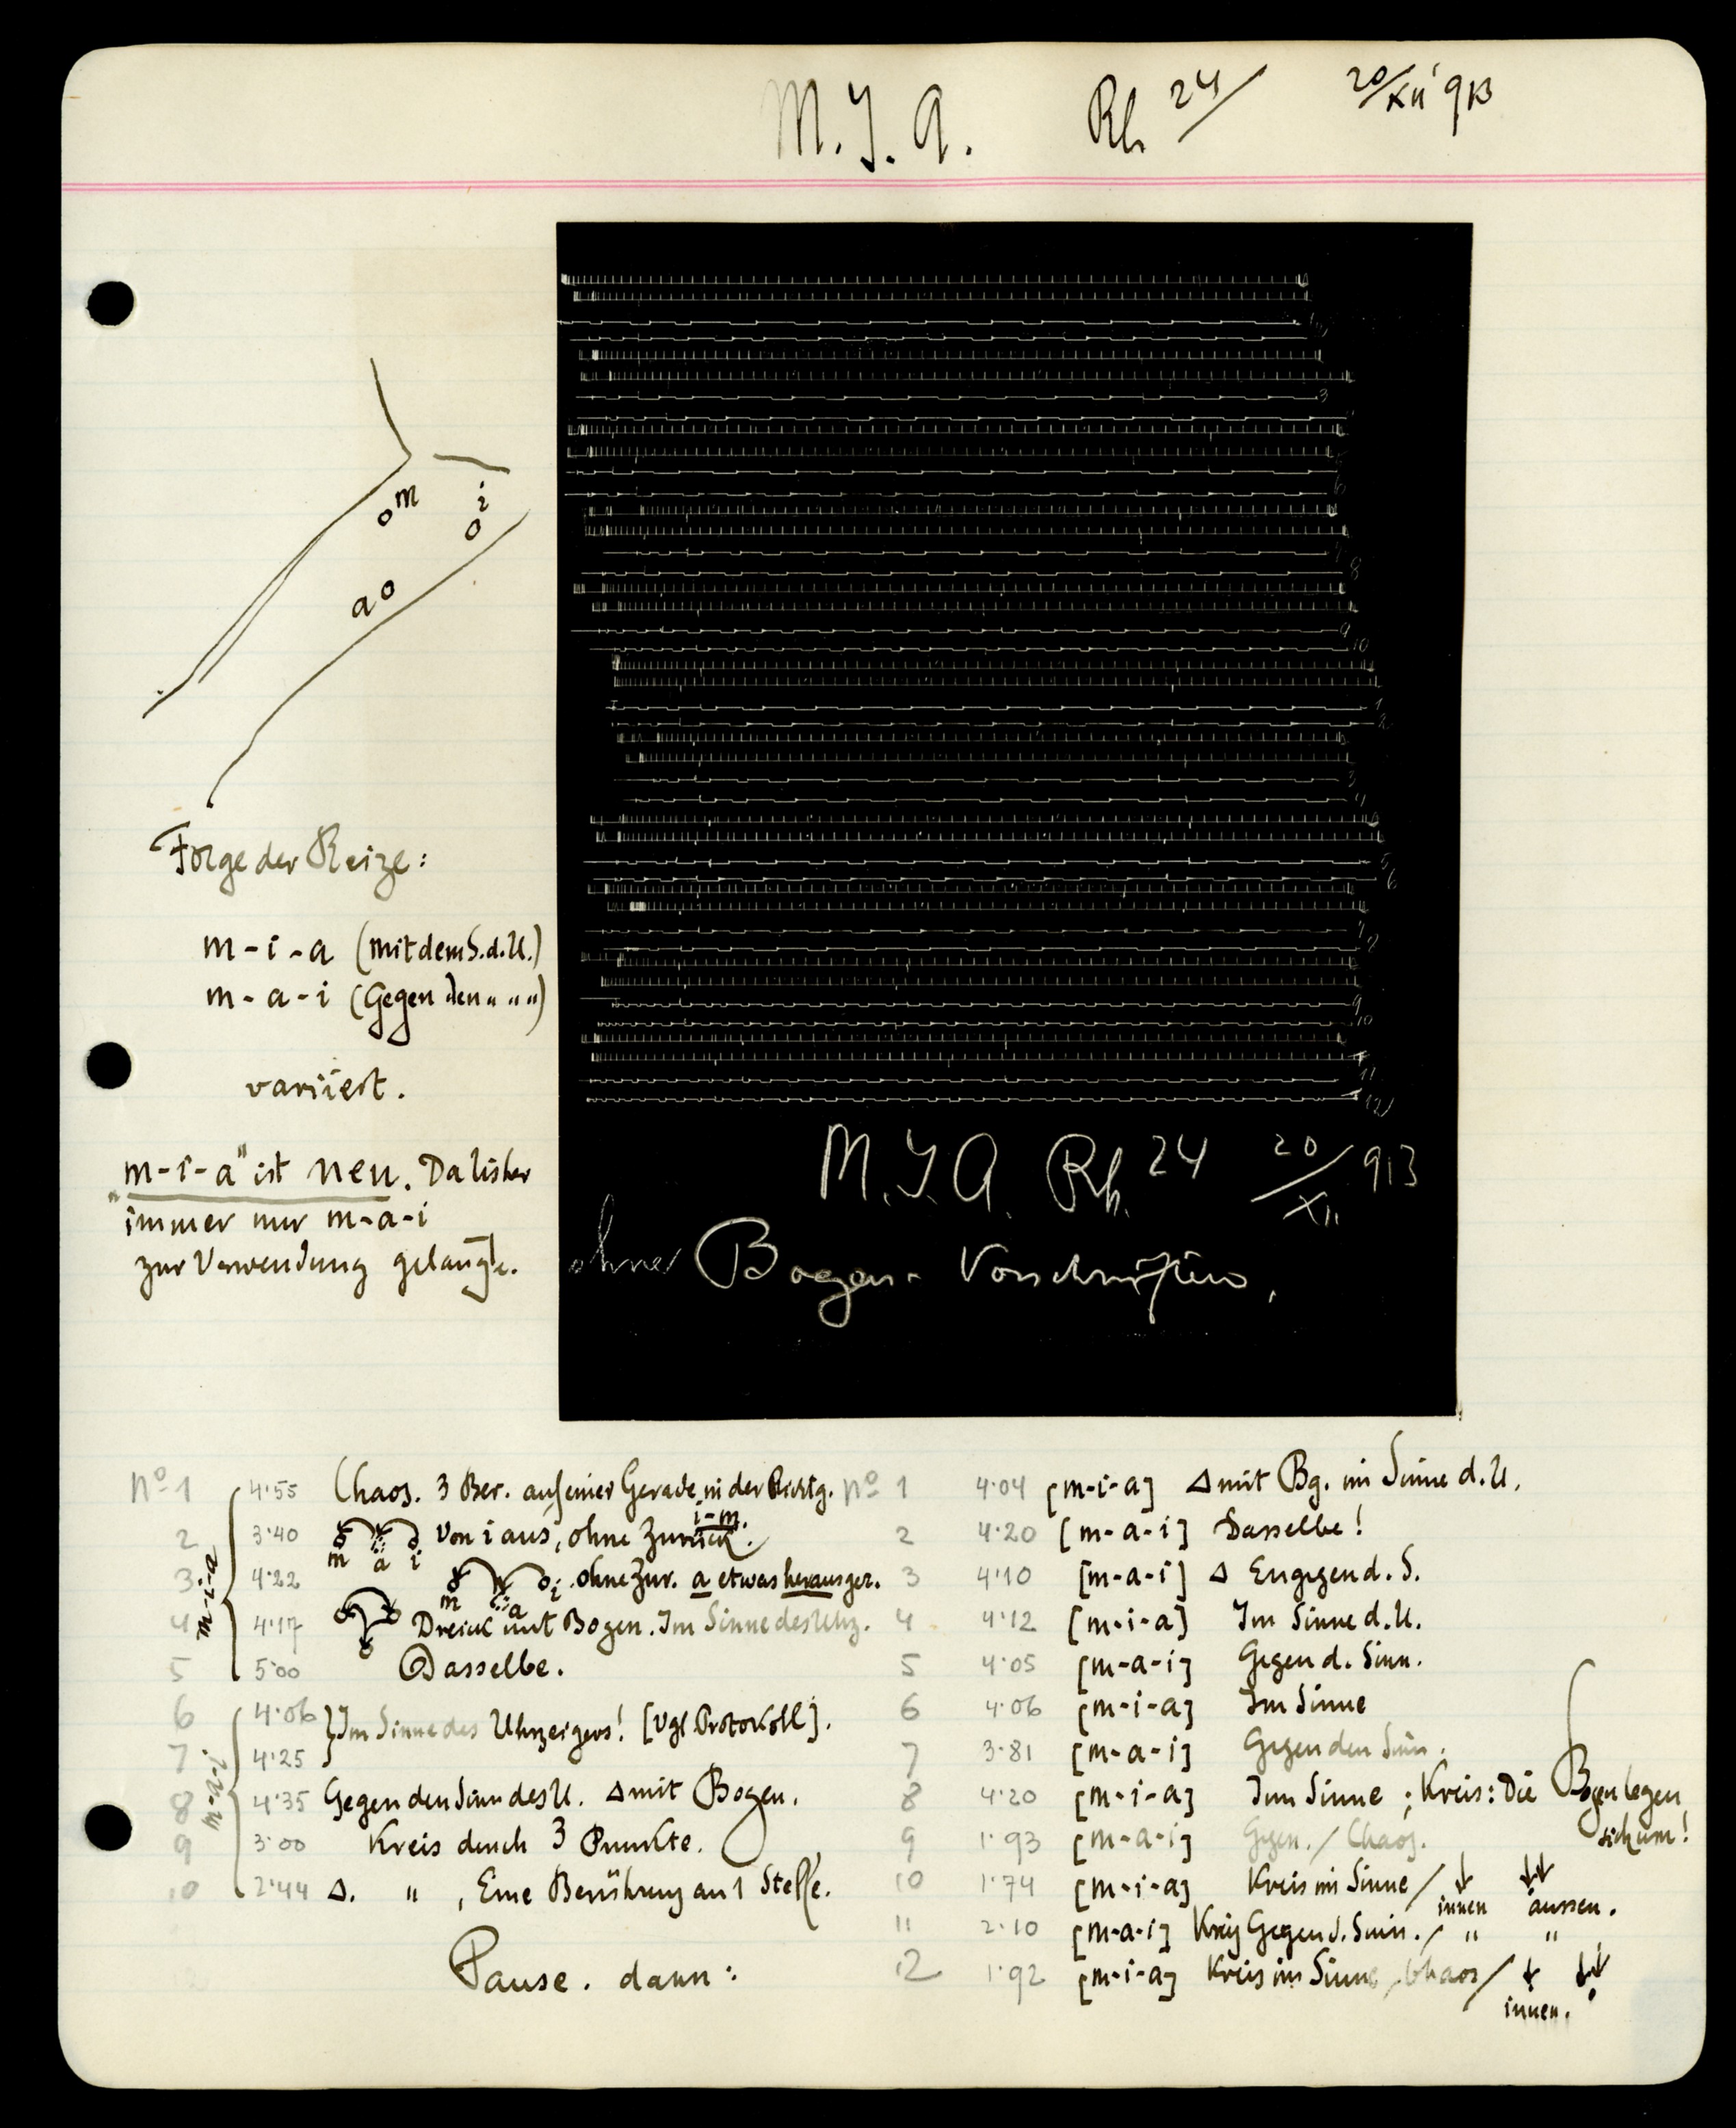 M. J. A. Rh 24/ 20/XII 913
m
i
a
Folge der Reize:
m-i-a (mit dem S.d.U.)
m-a-i (Gegen den " " ")
variiert.
"m-i-a" ist neu. Da bisher
immer nur m-a-i
zur Verwendung gelangte.
3
8
9
10
1
2
3
4
5
6
9
10
11
12
M. J. A. Rh. 24 20/XII 913
ohne Bogen-Vorschriften.
m-i-a
No 1 4·55 Chaos. 3 Ber. auf einer Gerade in der Richtg. i-m.
2 3·40 m a i Von i aus, ohne Zurück.
3 4·22 m a i ohne Zur. a etwas herausger.
4 4·17 Dreieck mit Bogen. Im Sinne des Uhrz.
5 5·00 Dasselbe.
6 4·06 Im Sinne des Uhrzeigers! [Vgl. Protokoll].
7 4·25
8 4·35 Gegen den Sinn des U. Δ mit Bogen.
9 3·00 Kreis durch 3 Punkte.
10 2·44 Δ. " , Eine Berührung an 1 Stelle.
Pause. dann:
No 1 4·04 [m-i-a] Δ mit Bg. im Sinne d. U.
2 4·20 [m-a-i] Dasselbe!
3 4·10 [m-a-i] Δ Engegen d. S.
4 4·12 [m-i-a] Im Sinne d. U.
5 4·05 [m-a-i] Gegen d. Sinn.
6 4·06 [m-i-a] Im Sinne
7 3·81 [m-a-i] Gegen den Sinn.
8 4·20 [m-i-a] Im Sinne ; Kreis: Die Bogen legen
sich um!
9 1·93 [m-a-i] Gegen. / Chaos.
10 1·74 [m-i-a] Kreis im Sinne / ↓ innen ↓↓ aussen.
11 2·10 [m-a-i] Kreis Gegen d. Sinn. / " "
12 1·92 [m-i-a] Kreis im Sinne / Chaos / ↓ ↓↓
innen.